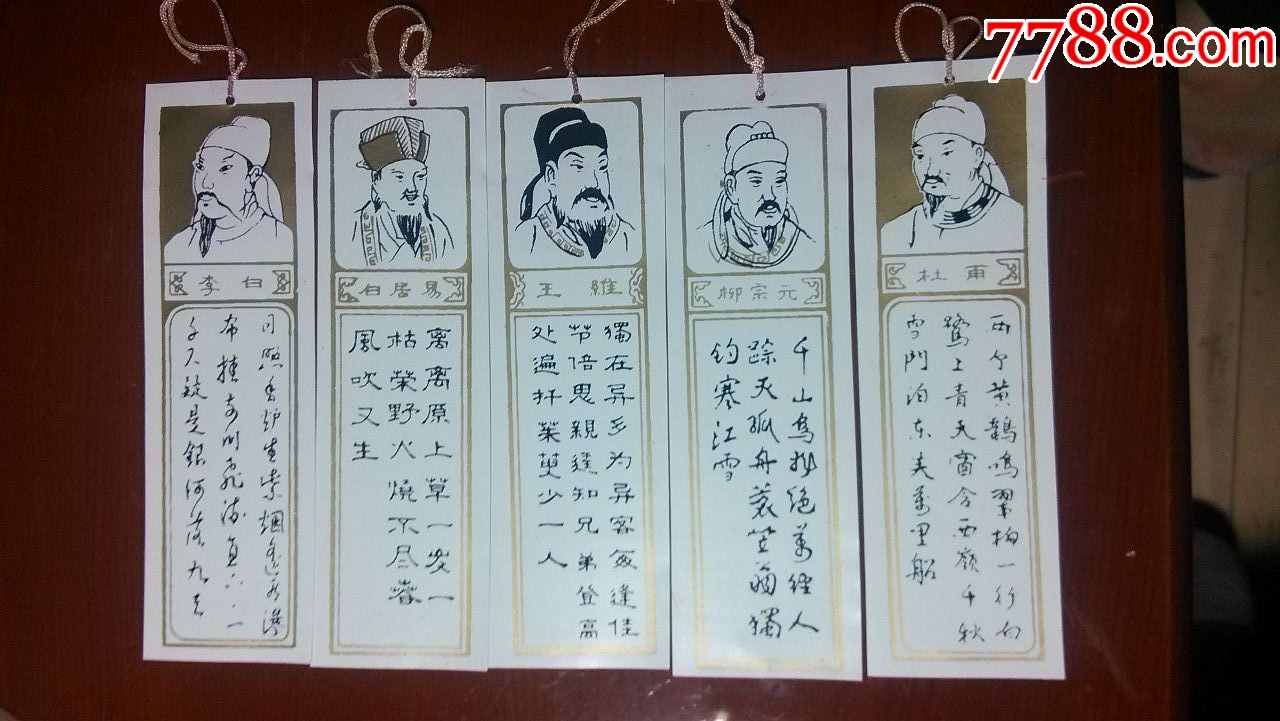 7788.com
李白
日照香炉生紫烟遥看瀑
布挂前川飞流直下三
千尺疑是銀河落九天
白居易
离离原上草一岁一
枯榮野火燒不尽春
風吹又生
王維
獨在异乡为异客每逢佳
节倍思親遥知兄弟登高
处遍扦茱萸少一人
柳宗元
千山鸟飛絕萬徑人
踪灭孤舟蓑笠翁獨
钓寒江雪
杜甫
两个黄鹂鳴翠柳一行白
鷺上青天窗含西嶺千秋
雪門泊东吴萬里船